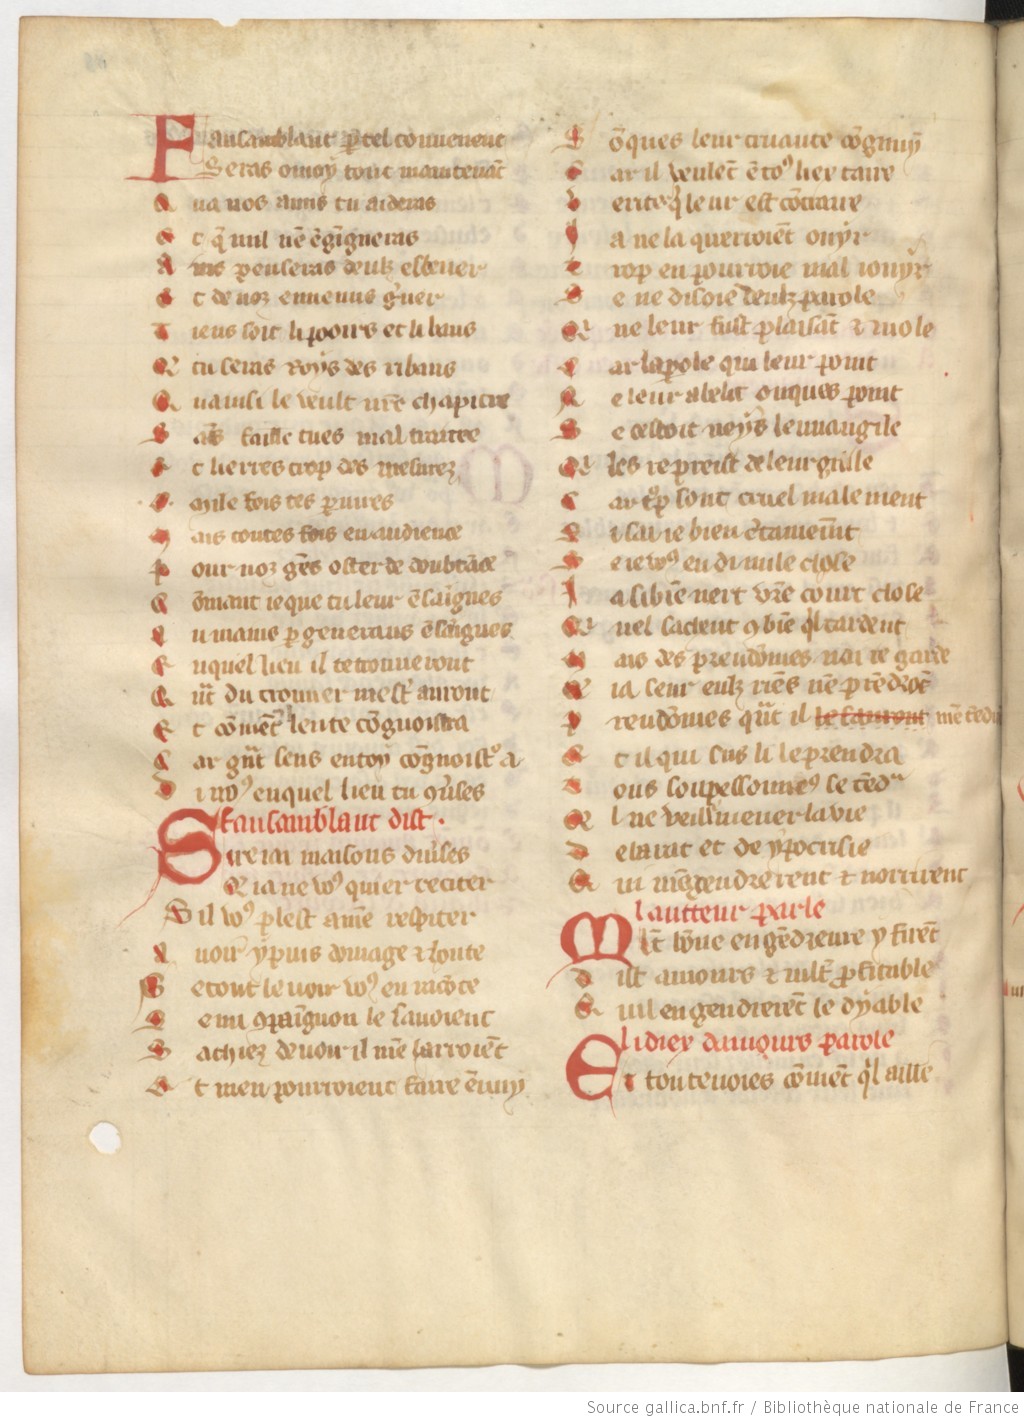 Fausamblant p tel conuenent
Seras o moy tout maintenāt
Q ua nos amis tu aideras
E t q̄ nul nē ēgigneras
A ins penseras deulz esleuer
E t de noz ennemis g̓uer
T iens soit li pooirs et li baus
Q tu seras roys des ribaus
Q uainsi le veult nr̄e chapitre
S ās faille tu es mal traitre
E t lierres trop des mesurez
C mile fois tes piures
M ais toutes fois en audience
P our noz gēs oster de doubtāce
C ōmant ie que tu leur ēsaignes
A u mains p generaus ēsaignes
E nquel lieu il te trouueroūt
S il du trouuer mest̓ auront
E t cōmēt len te cōgnoistra
C ar gñt sens en toy cōgnoist̓a
D i no⁹ en quel lieu tu 9u̓ses
Fausamblant dist .
Sire iai maisons diu̓ses
Q ia ne vo⁹ quier reciter
S il vo⁹ plest a me respiter
A uoir y puis domage & honte
S e tout le uoir vo⁹ en racōte
C e mi 9paīgnon le sauoient
S achiez de uoir il me harroiēt
E t men pourroient faire ēnuy
S ōques leur cruaute cōgnuy
C ar il veulēt ē to⁹ lieu taire
V erite q̄ leur est cōtraire
I a ne la querroient oyr
T rop en pourroie mal ioyr
S e ne disoie deulz parole
Q ne leur fust plaisāt & mole
C ar la pole qui leur point
N e leur abelit onques point
S e cestoit neys leuuangile
Q les repreist de leur guille
C ar t̓op sont cruel malement
S i sai ie bien c̓tainemēt
S e ie vo⁹ en di nule chose
I a si biē nert vr̄e court close
Q uel sachent 9biē q̄l tardent
M ais des preudōmes nai regarde
Q ia seur eulz riēs nē prēdrōt
P reudōmes qūt il le sauront mētēdr
E t il qui sus li le prendra
D ous soupessonne⁹ se tēdᵃ
Q l ne veille mener la vie
D e barat et de ypocrisie
Q ui mēgendrerent & norrirent
Lautteur parle
Mlt̄ bōne engēdreure y firēt
D ist amours & mlt̄ pfitable
Q uil engendrerēt le dyable
Li diex damours parole
Et toutenoies cōment q̄l aille